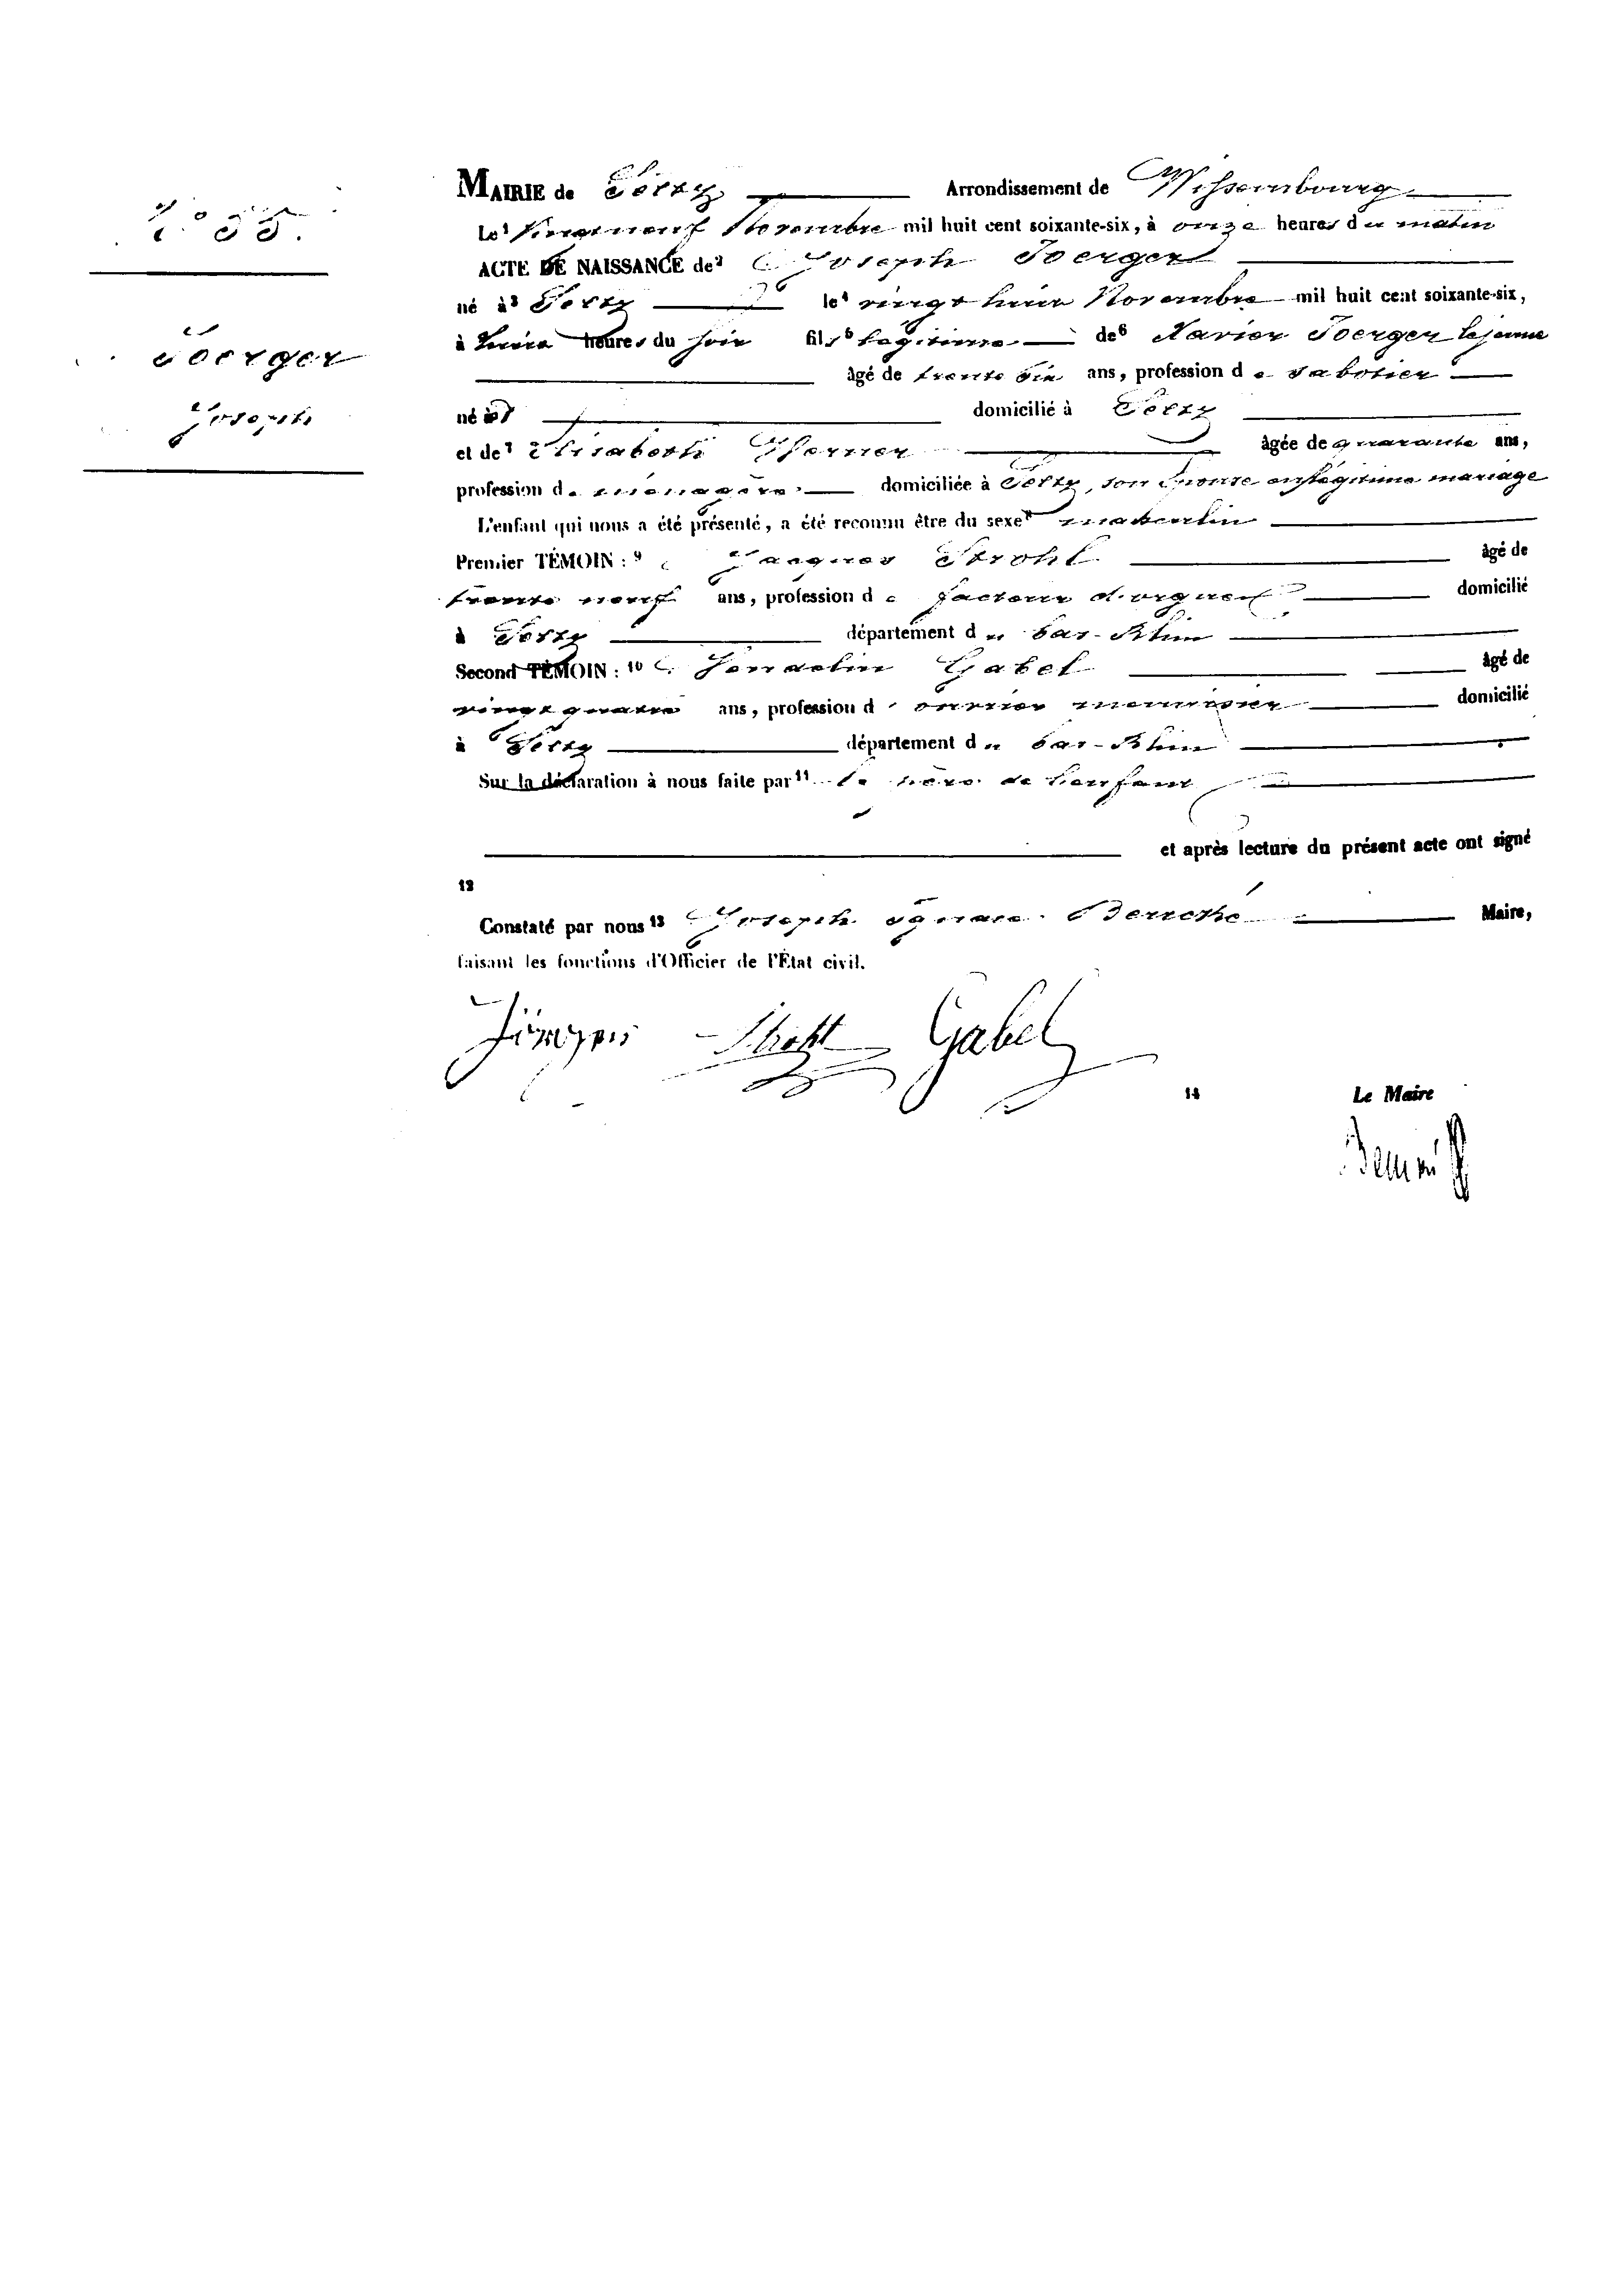 N° 85.
Joerger
Joseph
MAIRIE de Seltz Arrondissement de Wissembourg
Le¹ vingt neuf Novembre mil huit cent soixante-six, à onze heures du matin
ACTE DE NAISSANCE de² Joseph Joerger
né à³ Seltz le⁴ vingt huit Novembre mil huit cent soixante-six,
à heures du soir fils⁵ légitime de⁶ Xavier Joerger le jeune
âgé de trente six ans, profession de sabotier
né à domicilié à Seltz
et de⁷ Elisabeth âgée de quarante ans,
profession de ménagère domiciliée à Seltz, son épouse en légitime mariage
L'enfant qui nous a été présenté, a été reconnu être du sexe⁸ masculin
Premier TÉMOIN : ⁹ Jacques Strohl âgé de
trente neuf ans, profession de facteur d'orgues domicilié
à Seltz département du bas-Rhin
Second TÉMOIN : ¹⁰ Wendelin Gabel âgé de
vingt quatre ans, profession d' ouvrier menuisier domicilié
à Seltz département du bas-Rhin
Sur la déclaration à nous faite par¹¹ le père de l'enfant
et après lecture du présent acte ont signé
12
Constaté par nous¹³ Joseph Ignace Maire,
faisant les fonctions d'Officier de l'État civil.
Strohl Gabel
14 Le Maire